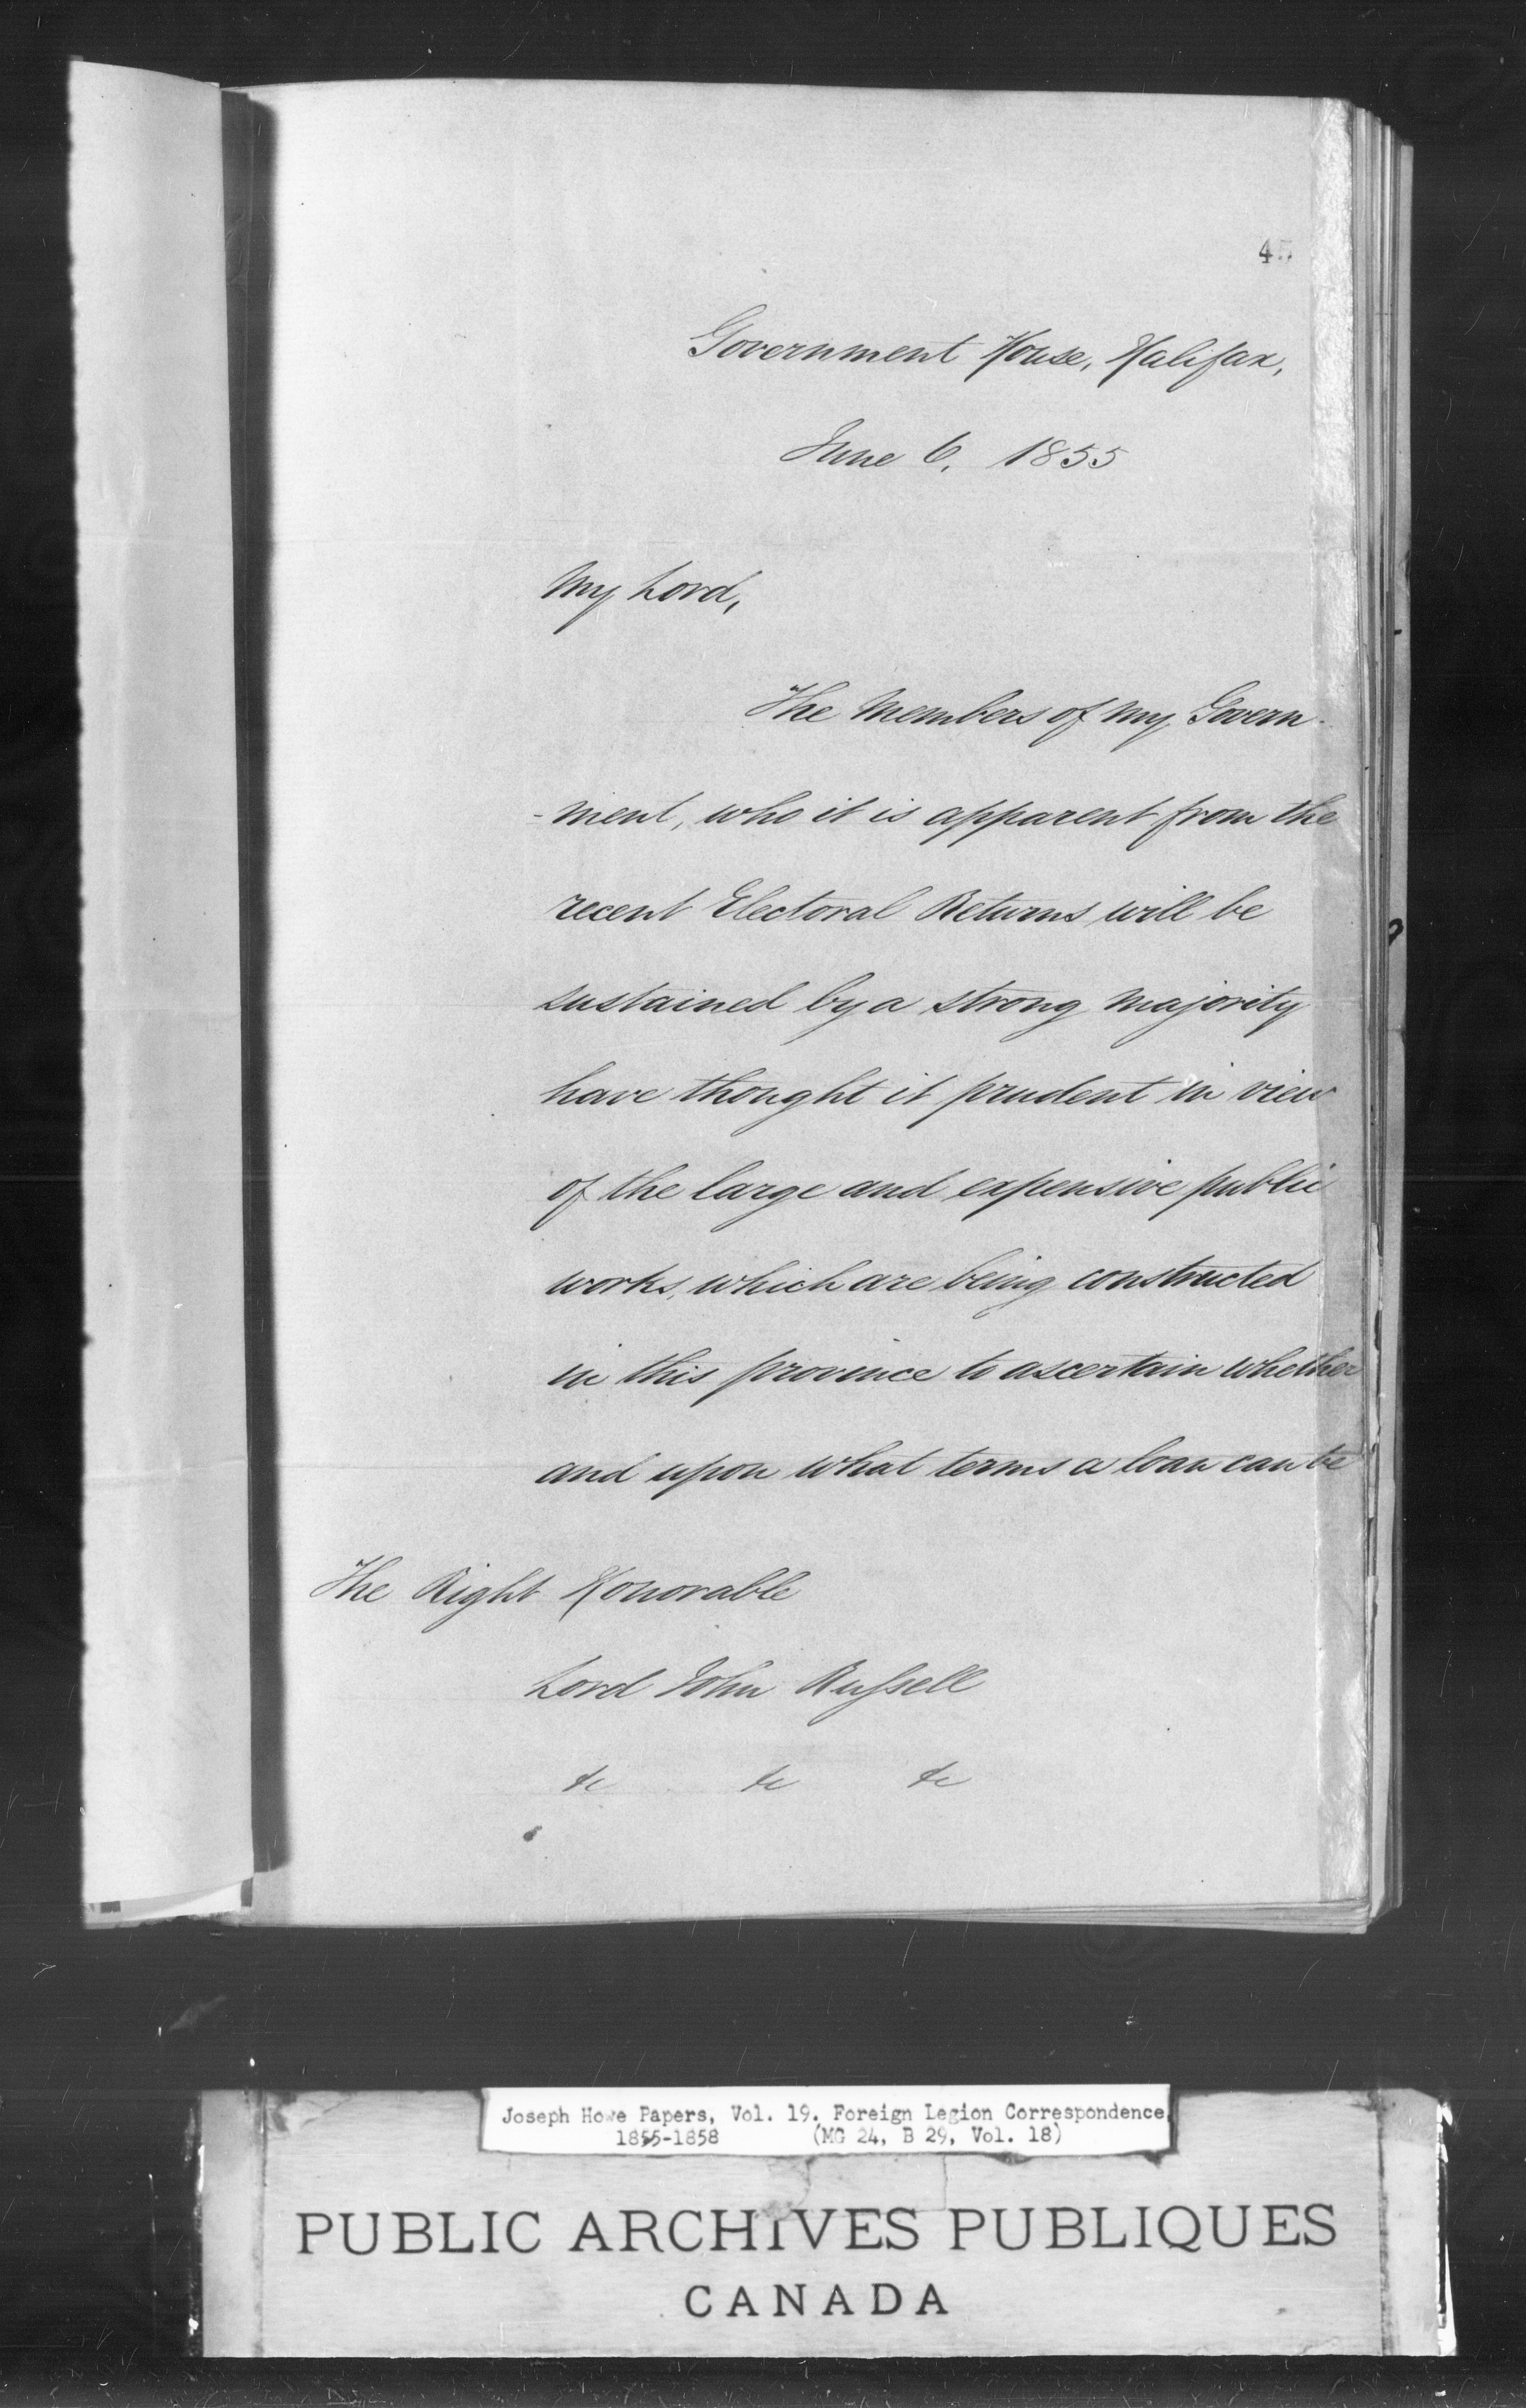 45
Government House, Halifax,
June 6, 1855
My Lord,
The Members of my Govern-
-ment, who it is apparent from the
recent Electoral Returns will be
sustained by a strong majority
have thought it prudent in view
of the large and expensive public
works, which are being constructed
in this province to ascertain whether
and upon what terms a loan can be
The Right Honorable
Lord John Russell
&c &c &c
Joseph Howe Papers, Vol. 19. Foreign Legion Correspondence
1855-1858 (MG 24, B 29, Vol. 18)
PUBLIC ARCHIVES PUBLIQUES
CANADA